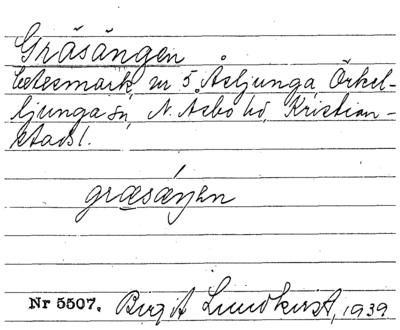 Gräsängen
betesmark nr 5 Åsljunga, Örkel-
ljunga sn, N. Åsbo hd, Kristian-
stads l.
græsæŋen
Nr 5507. Birgit Lundkvist, 1939